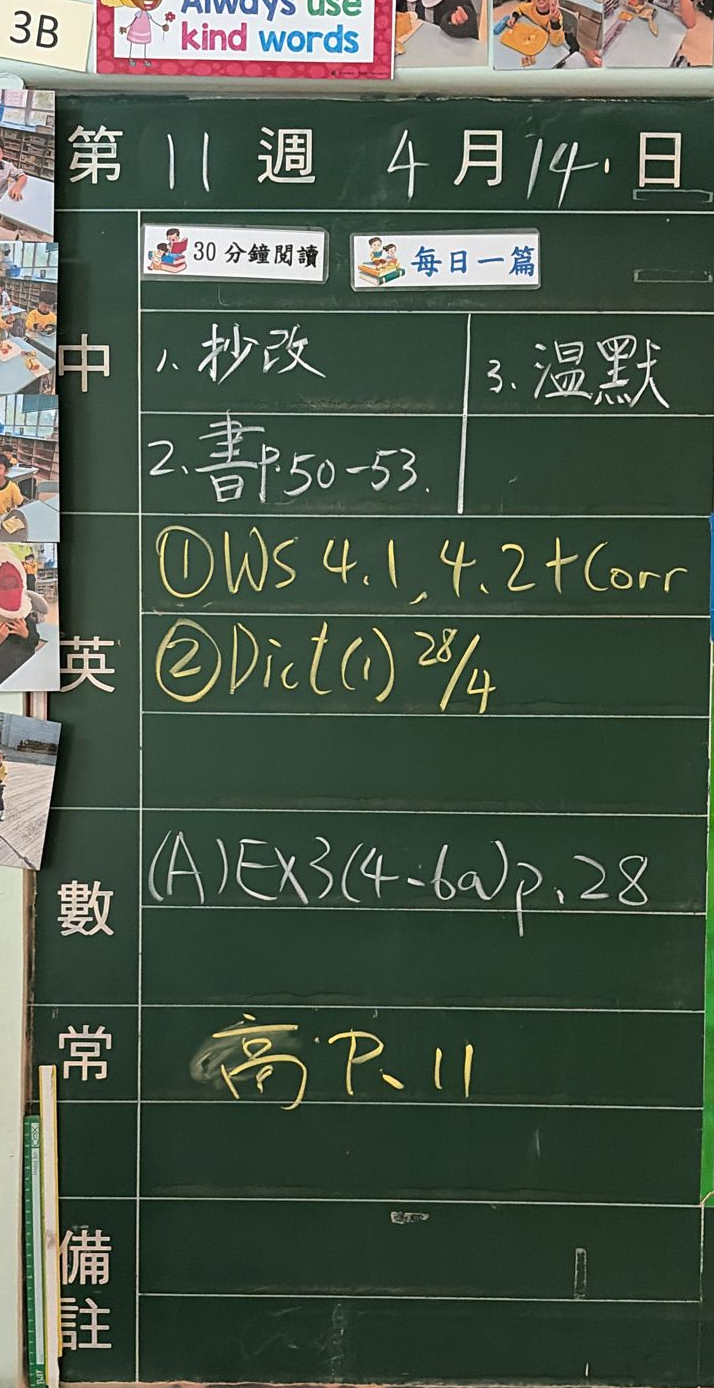 3B
Always use
kind words
第 11 週 4 月 14 日
30 分鐘閱讀 每日一篇
中
1. 抄改
3. 温默
2. 書p.50-53.
英
①WS 4.1, 4.2+Corr
②Dict(1) 28/4
數
(A)EX3(4-6a)p.28
常
高 P. 11
備註